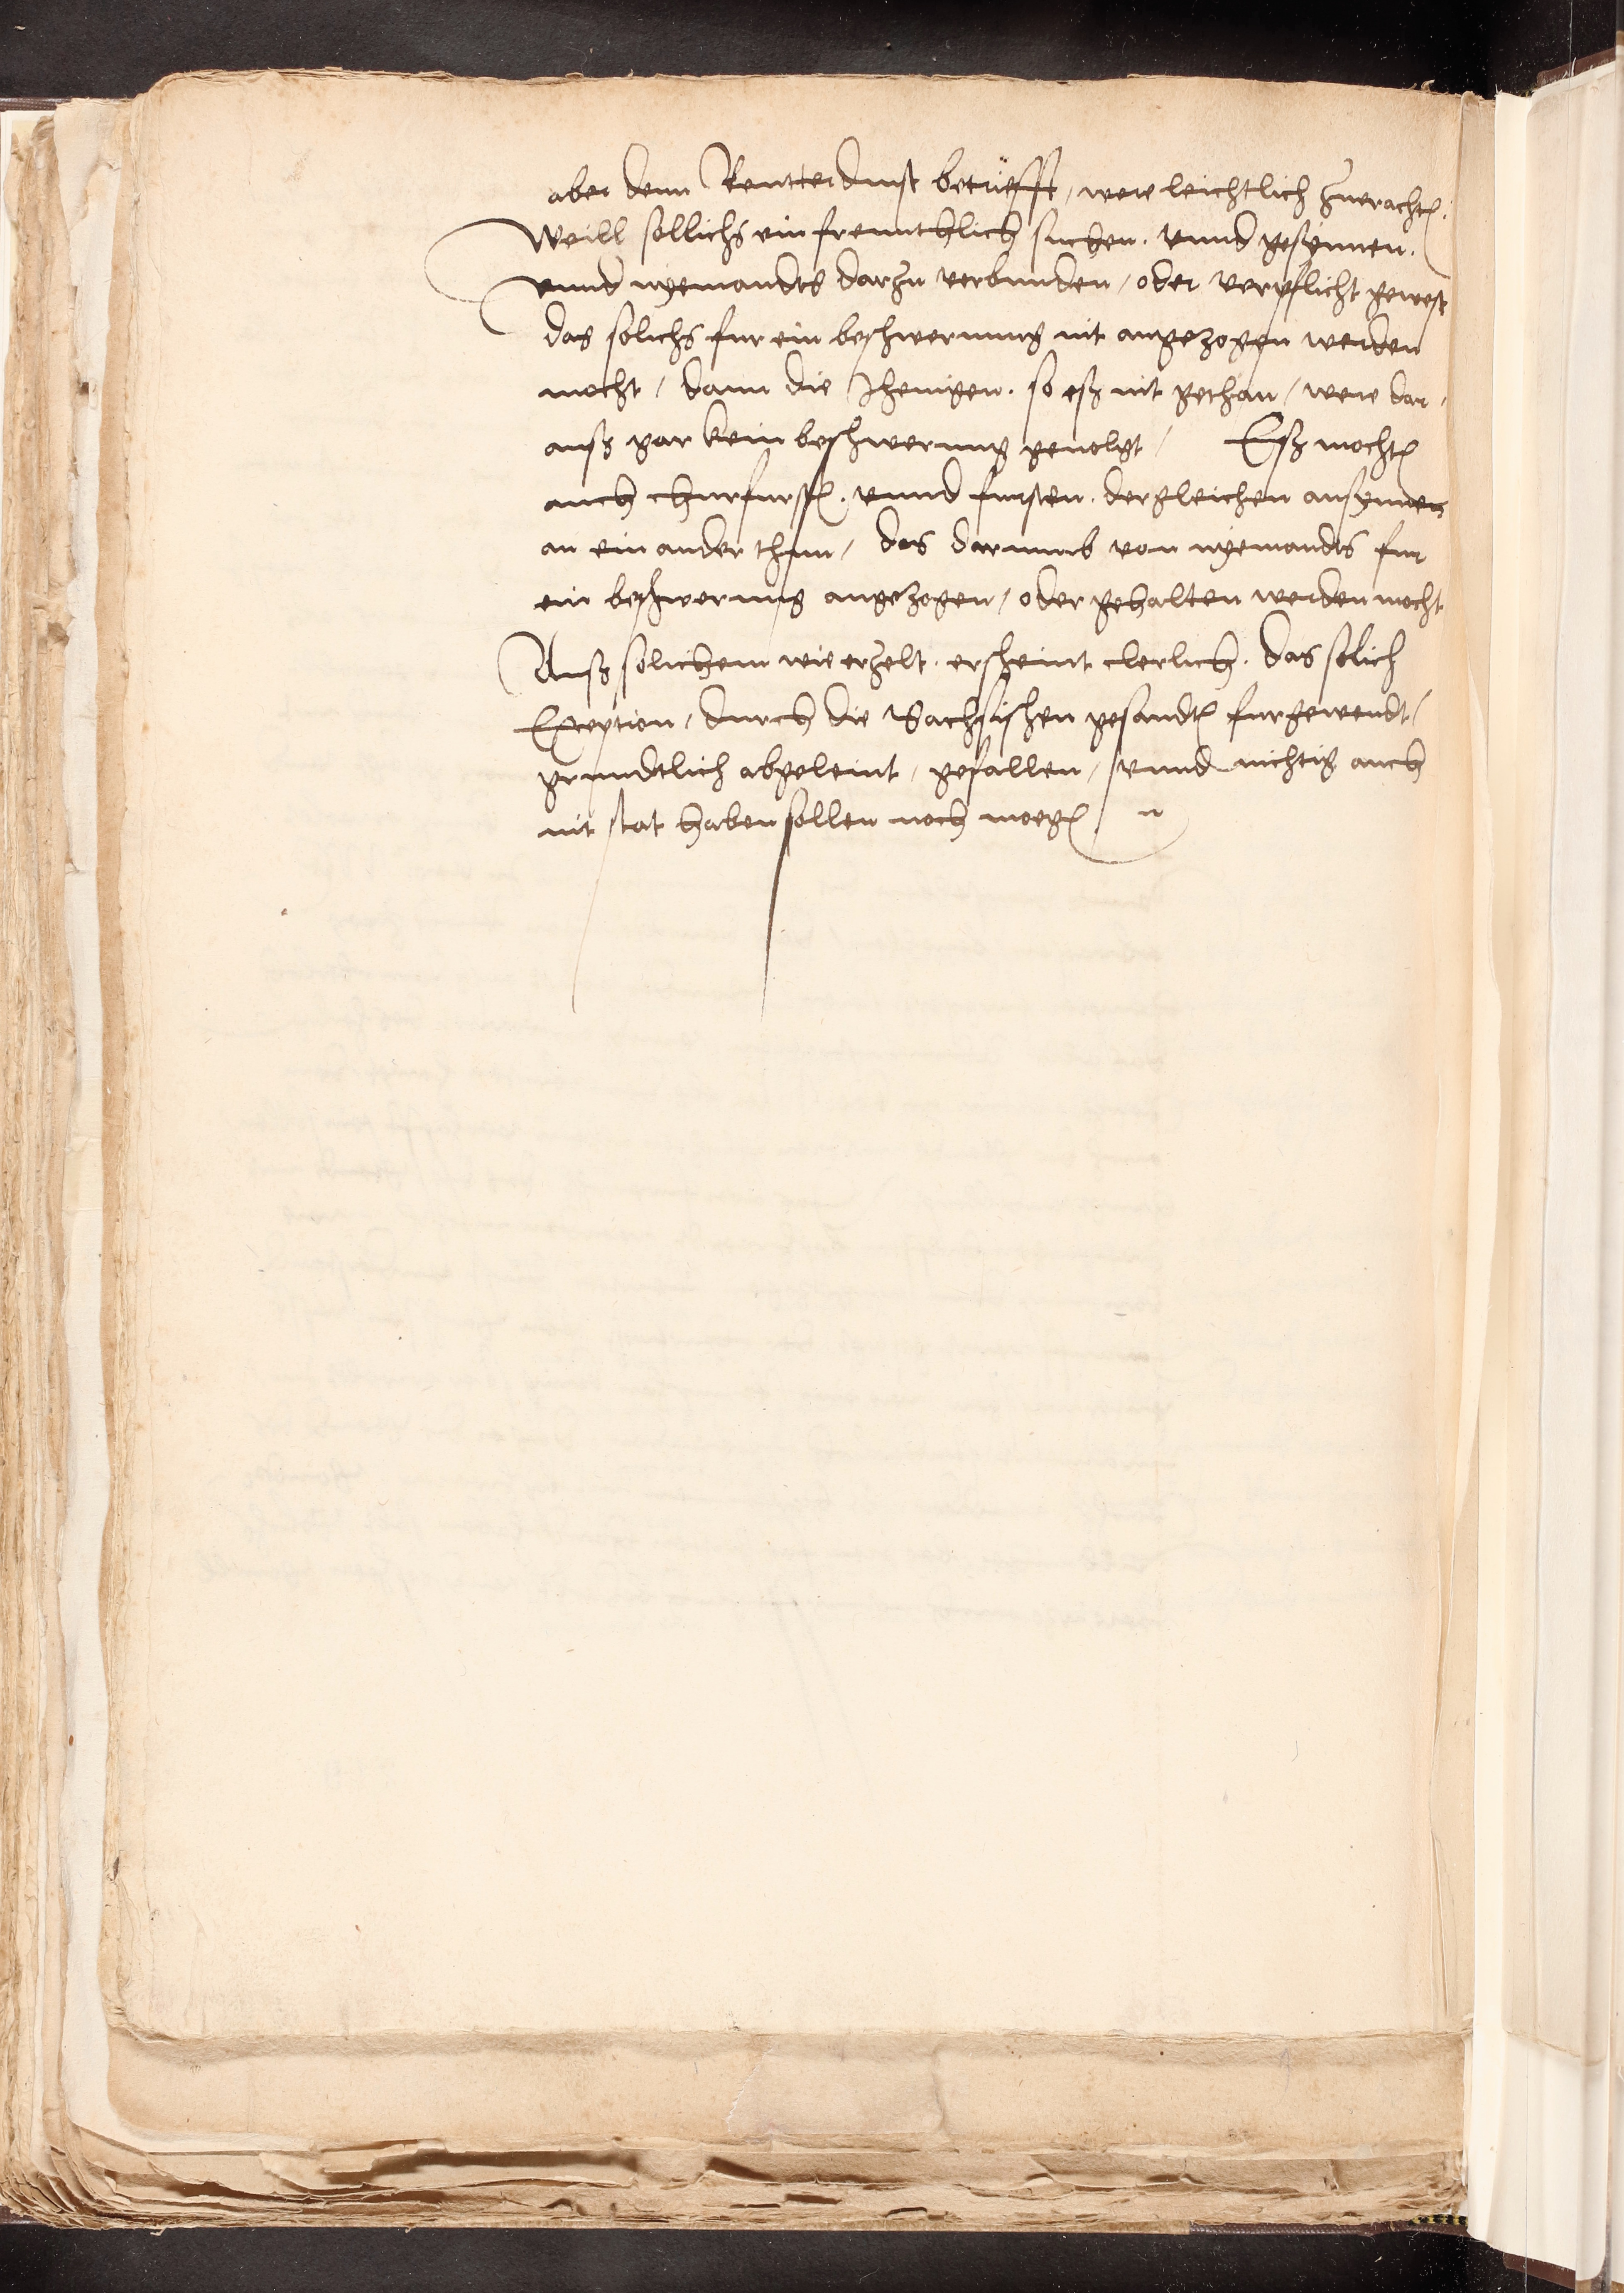 aber denn Reutterdinst betriefft, were leichtlich Zuerachten.
Weill sollichs ein freunthlich suchen. vnnd gesynnen.
vnnd nyemandts darzu verbunden, oder verpflicht gewest
das solichs fur ein beschwernung nit angezogen werden
mocht, dann die Jhenigen. so eß nit gethan, were dar,
auß gar kein beschwerung geuolgt, Eß mochten
auch churfursten. vnnd fursten. dergleichen ansynnen
an ein ander thun, das darumb von nyemandts fur
ein beschwerung angezogen, oder gehalten werden mocht
Auß solichem wie erzelt. erscheint clerlich. das solich
Exception, durch die Sachsischen gesandten furgewendt,
grundtlich abgeleint, gefallen, vnnd nichtig auch
nit stat haben sollen noch moegen.